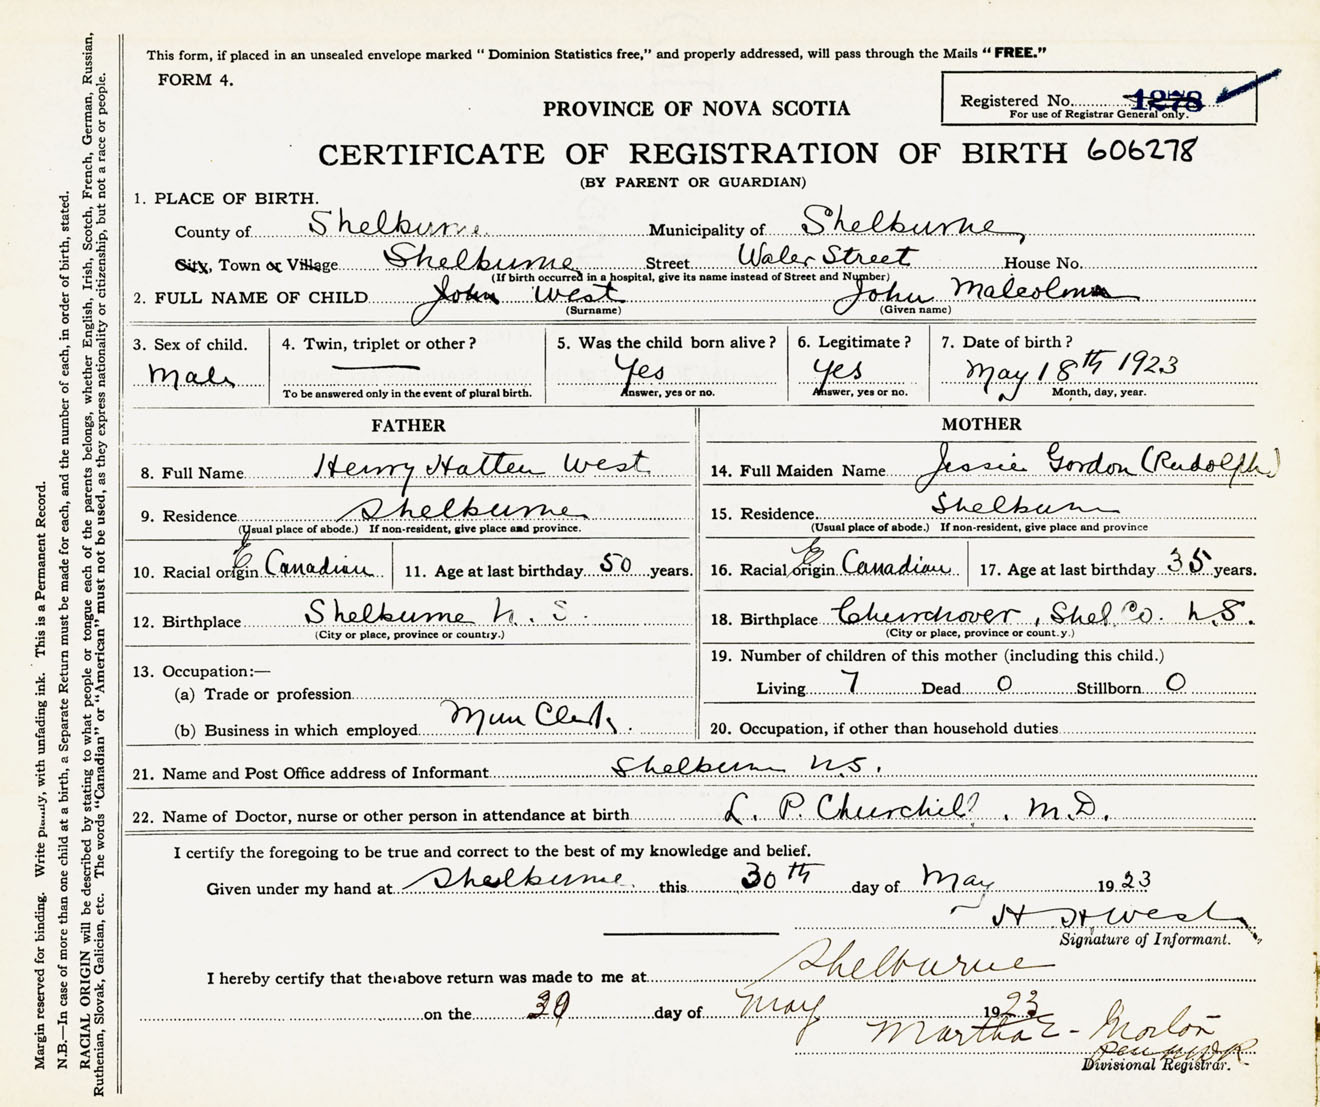 This form, if placed in an unsealed envelope marked " Dominion Statistics free," and properly addressed, will pass through the Mails " FREE."
FORM 4.
Registered No. 1278
For use of Registrar General only.
PROVINCE OF NOVA SCOTIA
CERTIFICATE OF REGISTRATION OF BIRTH 606278
(BY PARENT OR GUARDIAN)
1. PLACE OF BIRTH.
County of Shelburne Municipality of Shelburne
City, Town or Village Shelburne Street Water Street House No.
(If birth occurred in a hospital, give its name instead of Street and Number)
2. FULL NAME OF CHILD John West John Malcolm
(Surname) (Given name)
3. Sex of child. 4. Twin, triplet or other ? 5. Was the child born alive ? 6. Legitimate ? 7. Date of birth ?
Male Yes Yes May 18th 1923
To be answered only in the event of plural birth. Answer, yes or no. Answer, yes or no. Month, day, year.
FATHER MOTHER
8. Full Name Henry Hatten West 14. Full Maiden Name Jessie Gordon (Rudolph)
9. Residence Shelburne 15. Residence Shelburne
(Usual place of abode.) If non-resident, give place and province. (Usual place of abode.) If non-resident, give place and province
10. Racial origin E Canadian 11. Age at last birthday 50 years. 16. Racial origin E Canadian 17. Age at last birthday 35 years.
12. Birthplace Shelburne N. S. 18. Birthplace Churchover, Shel. Co. N.S.
(City or place, province or country.) (City or place, province or country.)
13. Occupation:— 19. Number of children of this mother (including this child.)
(a) Trade or profession Living 7 Dead 0 Stillborn 0
(b) Business in which employed Mun Clerk. 20. Occupation, if other than household duties
21. Name and Post Office address of Informant Shelburne N.S.
22. Name of Doctor, nurse or other person in attendance at birth L. P. Churchill, M.D.
I certify the foregoing to be true and correct to the best of my knowledge and belief.
Given under my hand at Shelburne this 30th day of May 1923
H H West
Signature of Informant.
I hereby certify that the above return was made to me at Shelburne
on the 30 day of May 1923
Martha E. Morton
Divisional Registrar.
Margin reserved for binding. Write plainly, with unfading ink. This is a Permanent Record.
N.B.—In case of more than one child at a birth, a Separate Return must be made for each, and the number of each, in order of birth, stated.
RACIAL ORIGIN will be described by stating to what people or tongue each of the parents belongs, whether English, Irish, Scotch, French, German, Russian,
Ruthenian, Slovak, Galician, etc. The words "Canadian" or "American" must not be used, as they express nationality or citizenship, but not a race or people.